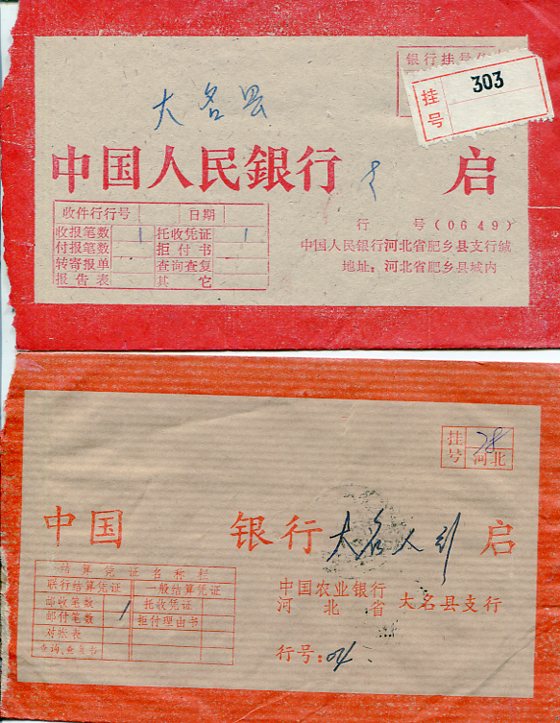 银行挂号
挂号
303
大名县
中国人民銀行 启
收件行行号 日期
收报笔数 1 托收凭证 1
付报笔数 拒付书
转寄报单 查询查复
报告表 其它
行号(0649)
中国人民银行河北省肥乡县支行缄
地址：河北省肥乡县城内
挂号 78 河北
中国 银行 大名人行 启
结算凭证名称栏
联行结算凭证 一般结算凭证
邮收笔数 托收凭证
邮付笔数 1 拒付理由书
对帐表
查询,查复书
中国农业银行
河北省 大名县支行
行号:04